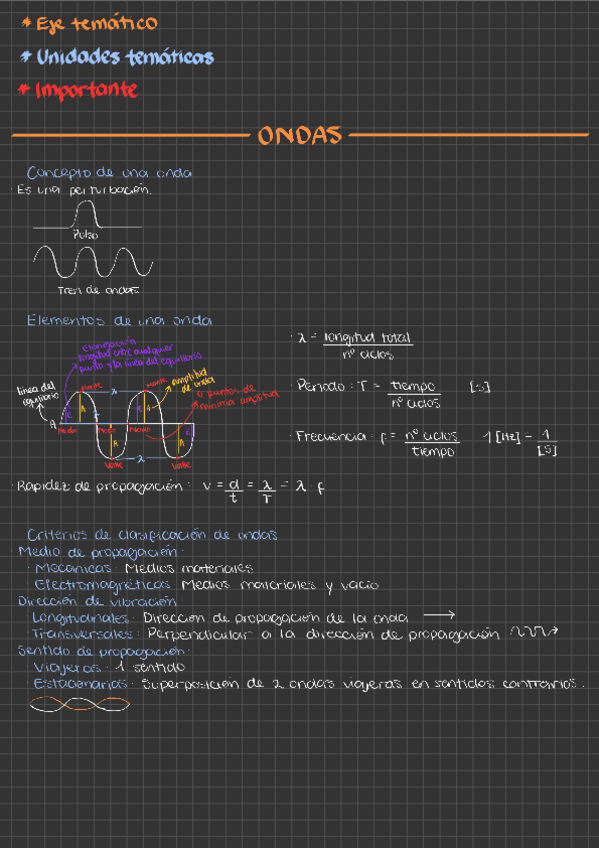 * Eje temático
* Unidades temáticas
* Importante
ONDAS
Concepto de una onda
· Es una perturbación.
Pulso
Tren de ondas
Elementos de una onda
Elongación
longitud entre cualquier
punto y la línea del equilibrio
línea del
equilibrio
Monte
λ
Monte
amplitud
de onda
o puntos de
mínima amplitud
A
E
A
E
A
E
Nodo
Nodo
Nodo
A
A
Valle
λ
Valle
· λ = longitud total
nº ciclos
· Período: T = tiempo [s]
nº ciclos
· Frecuencia: f = nº ciclos 1 [Hz] = 1
tiempo [s]
· Rapidez de propagación: v = d = λ = λ · f
t T
Criterios de clasificación de ondas
Medio de propagación:
· Mecánicas: Medios materiales
Electromagnéticas: Medios materiales y vacío
Dirección de vibración
Longitudinales: Dirección de propagación de la onda →
Transversales: Perpendicular a la dirección de propagación
Sentido de propagación:
Viajeras: 1 sentido
Estacionarias: Superposición de 2 ondas viajeras en sentidos contrarios.